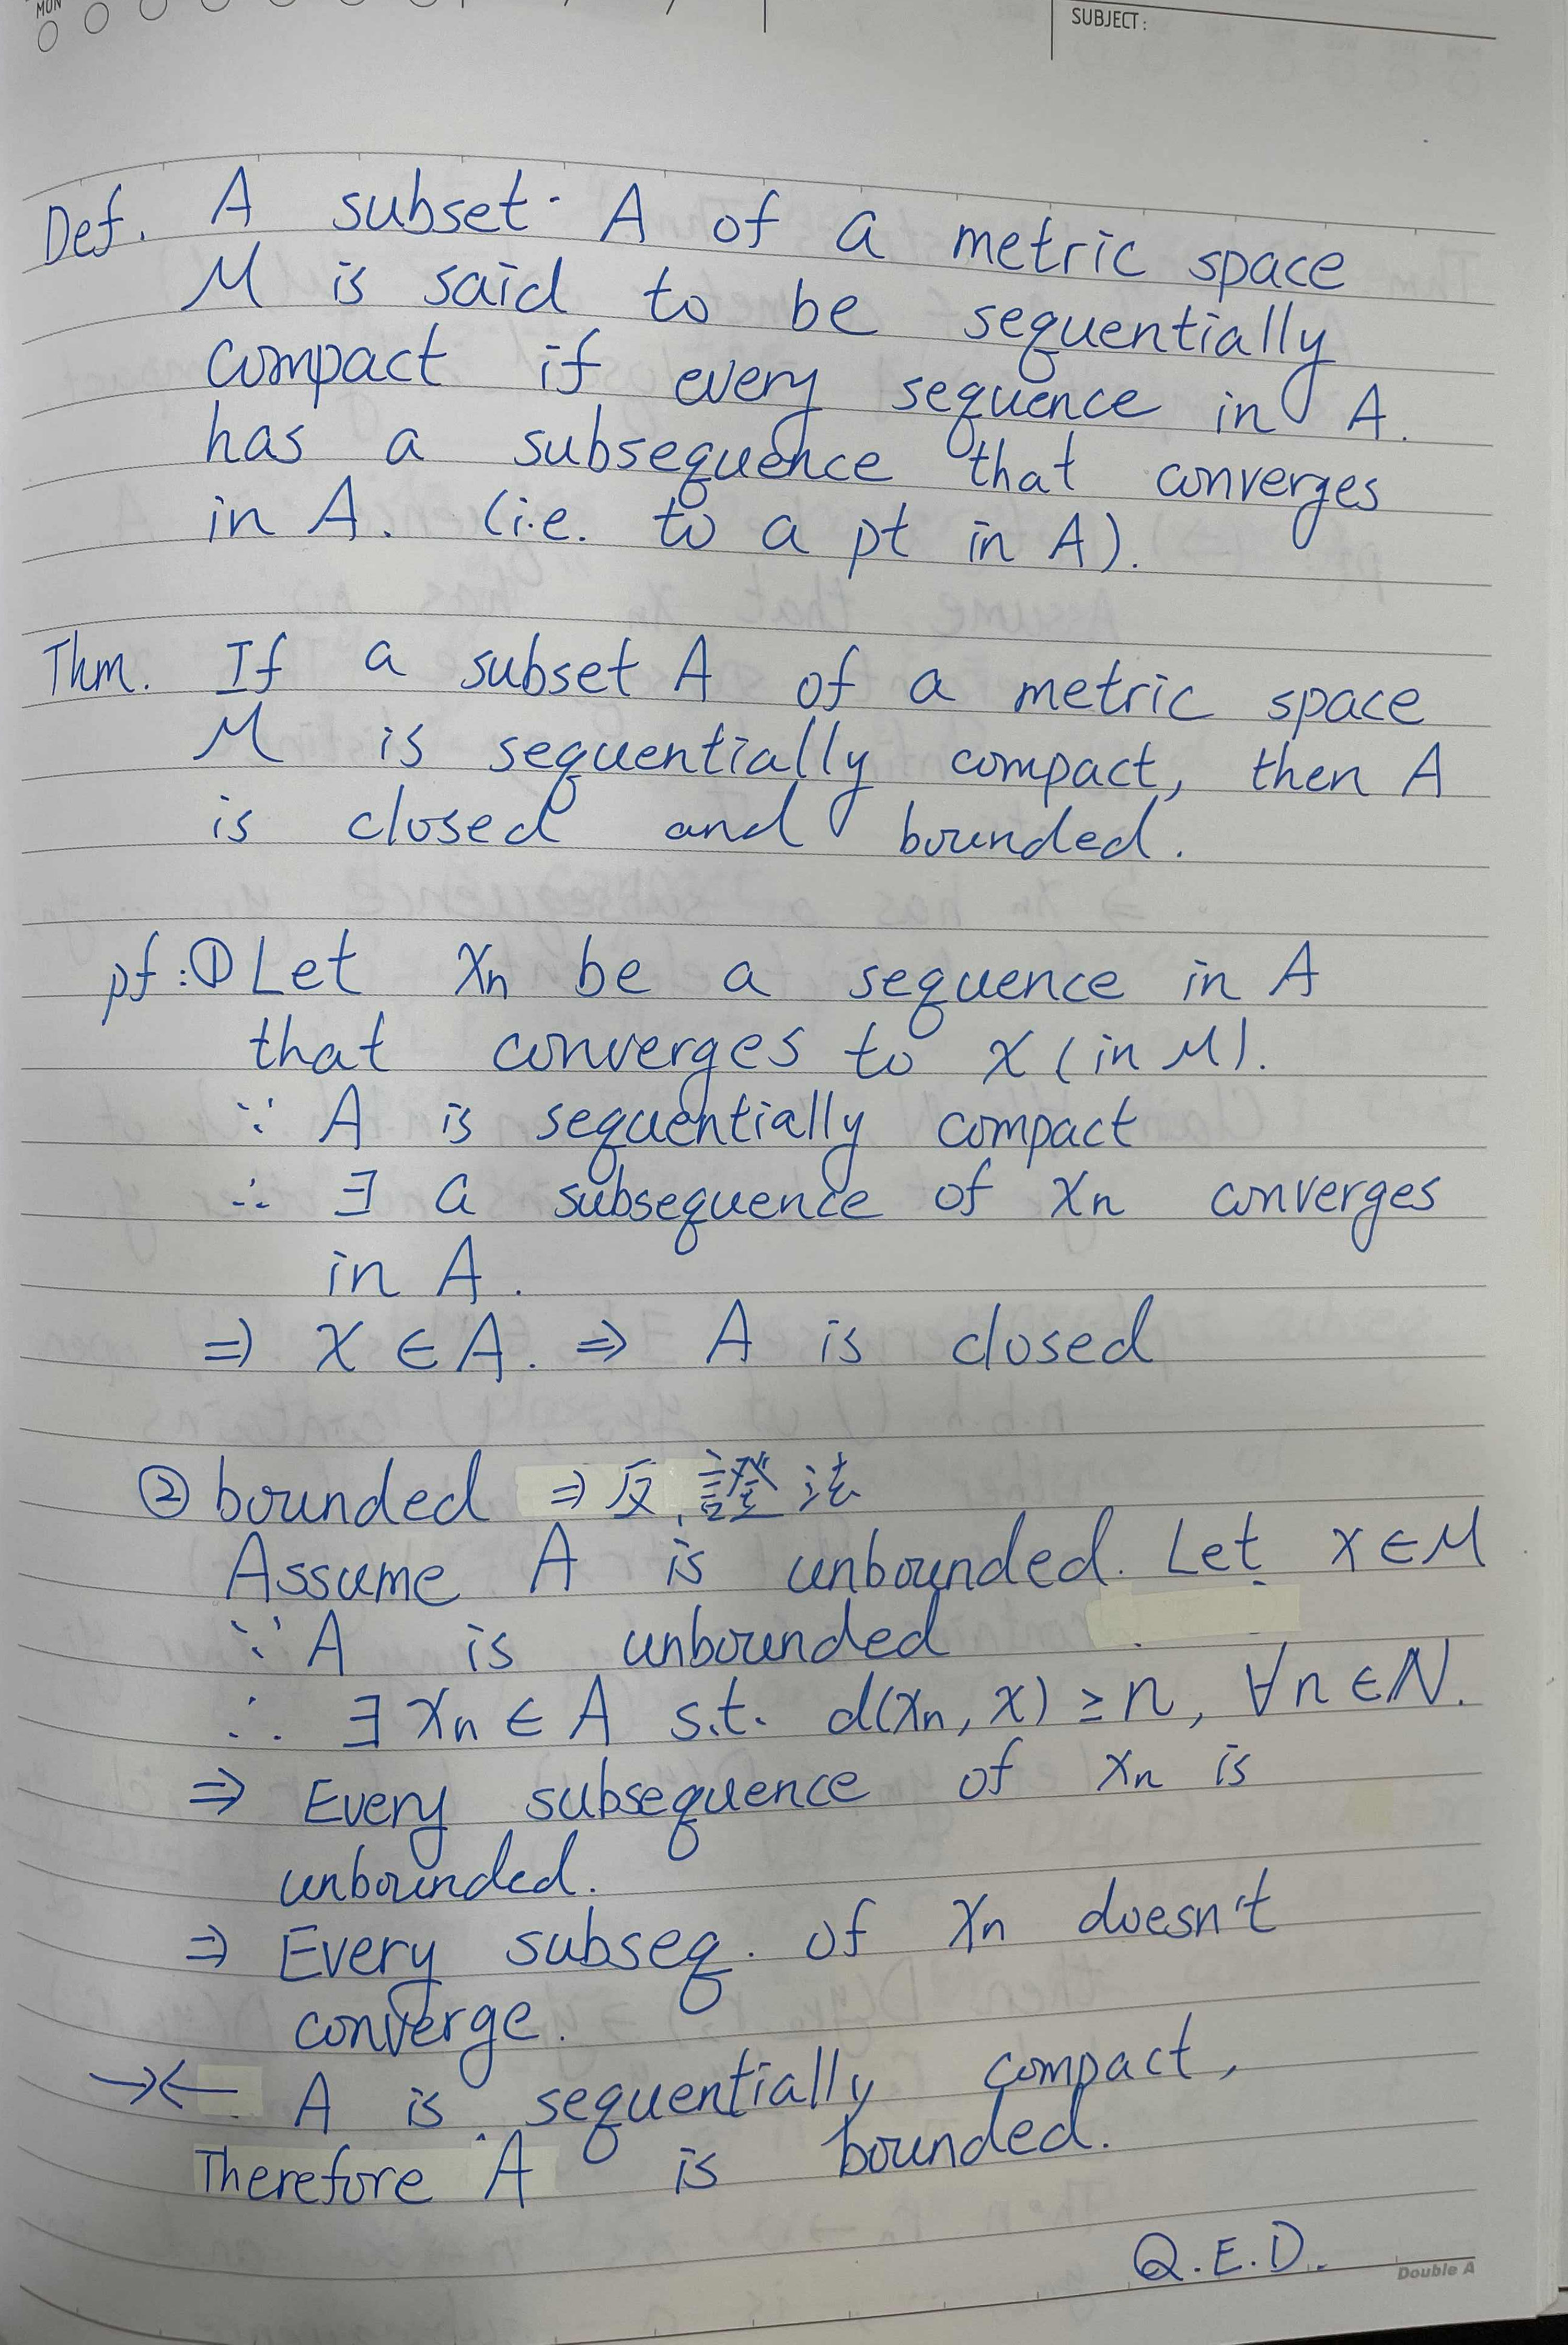 MON
SUBJECT:
Def. A subset A of a metric space
M is said to be sequentially
compact if every sequence in A.
has a subsequence that converges
in A. (i.e. to a pt in A).
Thm. If a subset A of a metric space
M is sequentially compact, then A
is closed and bounded.
pf:① Let xn be a sequence in A
that converges to x (in M).
∵ A is sequentially compact
∴ ∃ a subsequence of xn converges
in A.
⇒ x ∈ A. ⇒ A is closed
② bounded ⇒ 反證法
Assume A is unbounded. Let x ∈ M
∵ A is unbounded
∴ ∃ xn ∈ A s.t. d(xn, x) ≥ n, ∀n ∈ N.
⇒ Every subsequence of xn is
unbounded.
⇒ Every subseq. of xn doesn't
converge.
→← A is sequentially compact,
Therefore A is bounded.
Q.E.D.
Double A